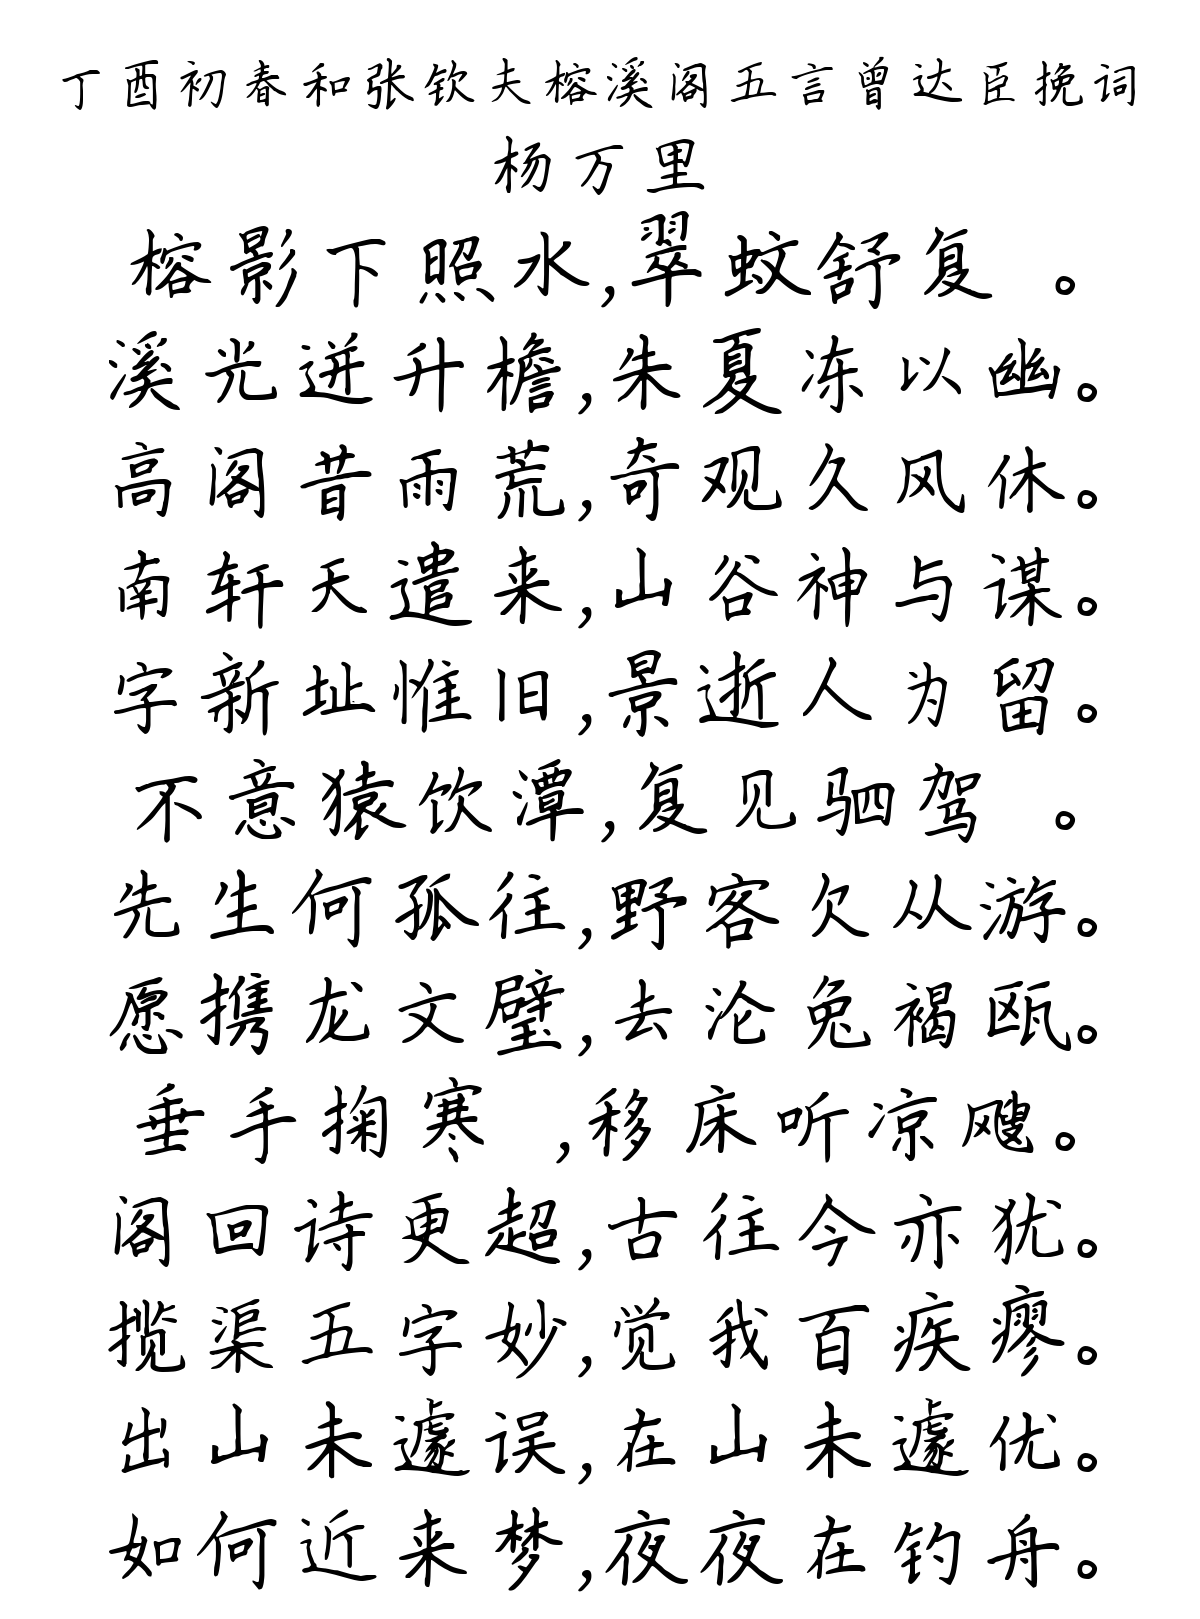 丁酉初春和张钦夫榕溪阁五言曾达臣挽词
杨万里
榕影下照水,翠蚊舒复 。
溪光迸升檐,朱夏冻以幽。
高阁昔雨荒,奇观久风休。
南轩天遣来,山谷神与谋。
字新址惟旧,景逝人为留。
不意猿饮潭,复见驷驾 。
先生何孤往,野客欠从游。
愿携龙文璧,去沦兔褐瓯。
垂手掬寒 ,移床听凉飕。
阁回诗更超,古往今亦犹。
揽渠五字妙,觉我百疾瘳。
出山未遽误,在山未遽优。
如何近来梦,夜夜在钓舟。